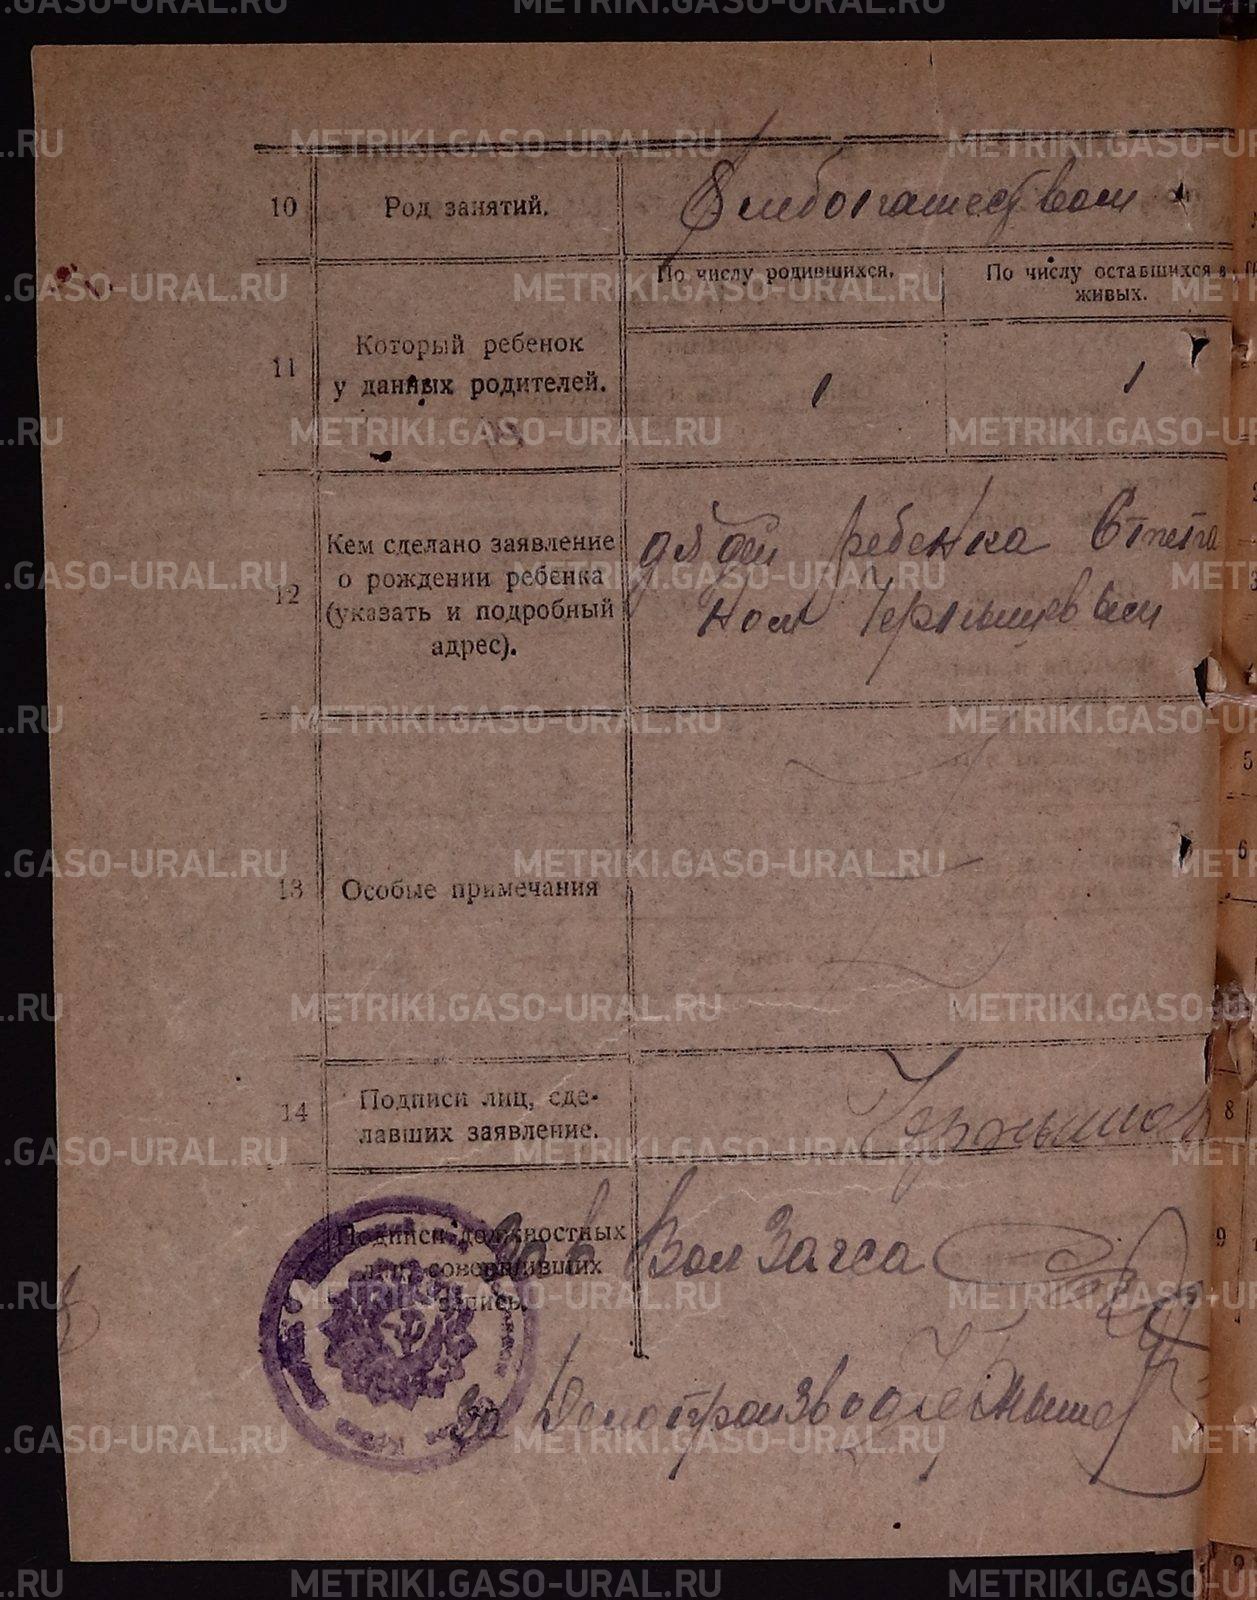 METRIKI.GASO-URAL.RU
10 Род занятий.
11 Который ребенок
у данных родителей.
По числу родившихся.
По числу оставшихся в
живых.
1 1
12 Кем сделано заявление
о рождении ребенка
(указать и подробный
адрес).
дядей ребенка Степа
ном Чернышевым
13 Особые примечания
14 Подписи лиц, сде-
лавших заявление.
Чернышов
Подписи должностных
лиц совершивших
запись.
Зав Вол Загса
За Делопроизвод Чернышов
5
6
8
9